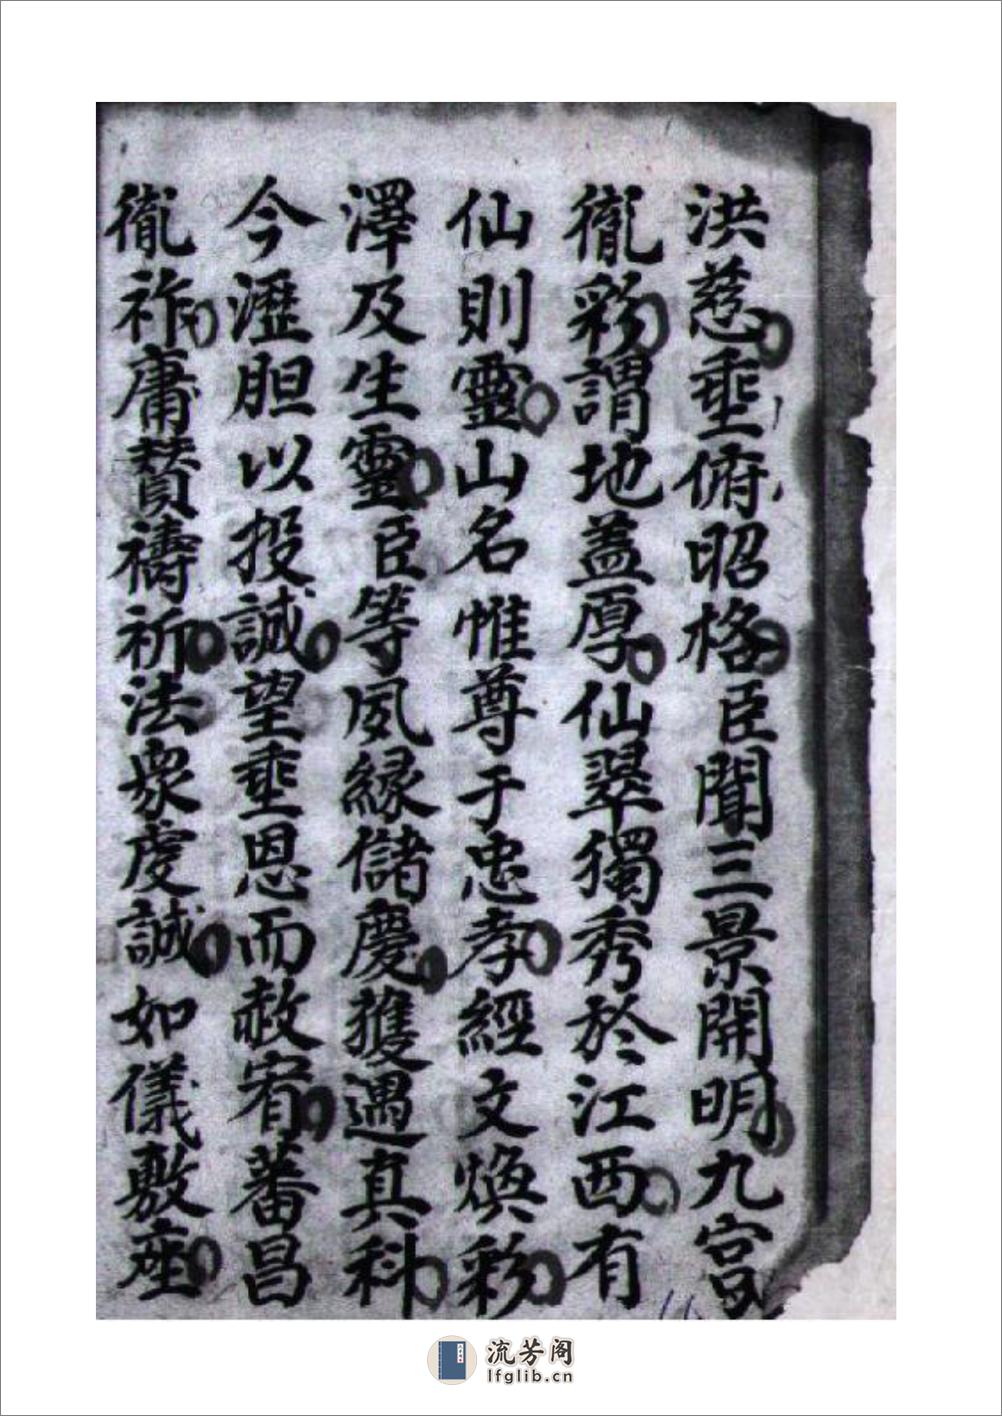 洪慈垂俯昭格臣聞三景開明九宮
徹彩謂地蓋厚仙翠獨秀於江西有
仙則靈山名惟尊于忠孝經文煥彩
澤及生靈臣等夙緣儲慶獲遇真科
今瀝胆以投誠望垂恩而赦宥蕃昌
胤祚庸賛禱祈法衆虔誠如儀敷座
流芳阁
lfglib.cn